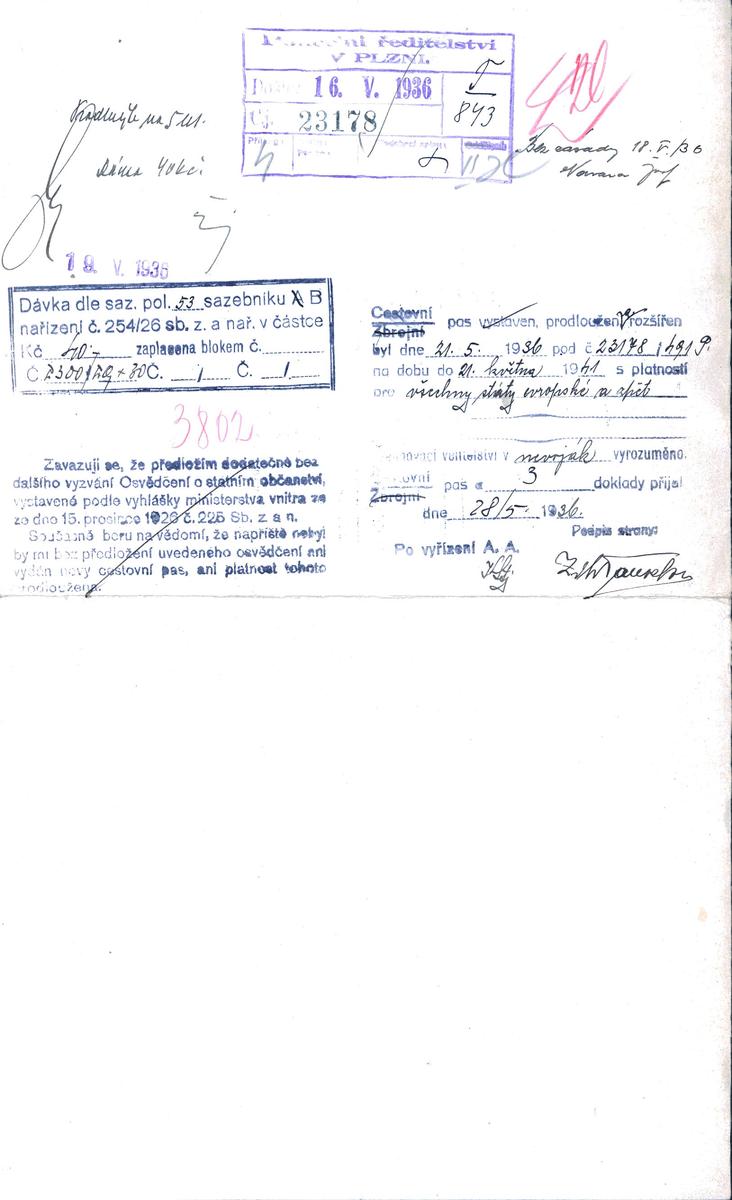 Policejní ředitelství
V PLZNI.
16. V. 1936
Čj. 23178
843
420
Bez závady 18. V. /36
na 5 let.
40 Kč.
19. V. 1936
Dávka dle saz. pol. 53 sazebníku A B
nařízení č. 254/26 sb. z. a nař. v částce
Kč 40.- zaplacena blokem č.
Č. Č. 1 Č. 1
3802
Zavazuji se, že předložím dodatečně bez
dalšího vyzvání Osvědčení o statním občanství,
vystavené podle vyhlášky ministerstva vnitra ze
ze dno 15. prosince 1926 č. 225 Sb. z. a n.
Současně beru na vědomí, že napříště nebyl
by mi bez předložení uvedeného osvědčení ani
vydán nový cestovní pas, ani platnost tohoto
prodloužena.
Cestovní
Zbrojní pas vystaven, prodloužen, rozšířen
byl dne 21. 5. 1936 pod č 23178
na dobu do 21. května 1941 s platností
pro všechny státy evropské a zpět
velitelství v nevoják vyrozuměno.
Cestovní
Zbrojní pas a 3 doklady přijal
dne 28/5 1936.
Podpis strany:
Po vyřízení A. A.